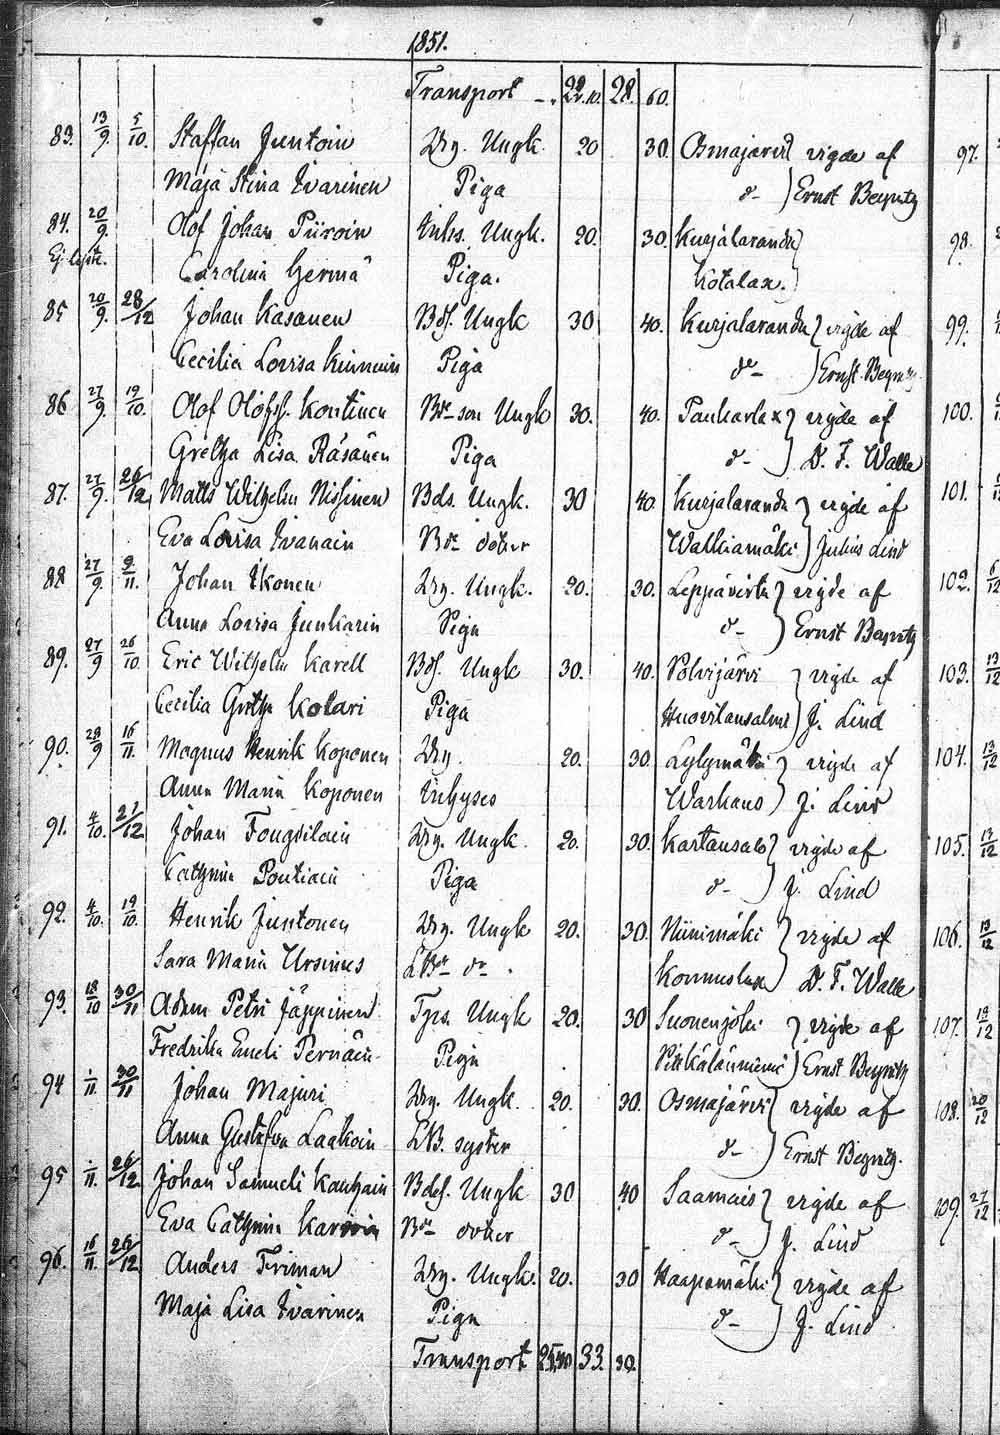 1851.
Transport 22.10. 28. 60.
83. 13/9. 5/10. Staffan Juntoin Drg. Ungk. 20 30. Osmajärvi vigde af
Maja Stina Ivarinen Piga d- Ernst Beyritz
84. 20/9. Olof Johan Piiroin Inhs. Ungk. 20. 30. Kurjalaranda
Ej lyst. Carolina Germä Piga. Kotalax.
85 20/9. 28/12 Johan Kasanen Bds. Ungk 30 40. Kurjalaranda vigde af
Cecilia Lovisa Piga do- Ernst Beyritz
86 27/9. 19/10. Olof Olofss. Kontinen Bde son Ungk 30. 40. Paukarlax vigde af
Gretha Lisa Räsänen Piga d- D. F. Walle
87. 27/9. 26/12 Matts Wilhelm Nissinen Bds. Ungk. 30 40. Kurjalaranda vigde af
Eva Lovisa Ivanain Bde doter Walkiamäki Julius Lind
88 27/9. 9/11. Johan Ikonen Drg. Ungk. 20. 30. Leppävirta vigde af
Anna Lovisa Junkarin Piga d- Ernst Beyritz
89. 27/9 26/10. Eric Wilhelm Karell Bds. Ungk 30. 40. Polvijärvi vigde af
Cecilia Greta Kolari Piga Huovilansalmi J. Lind
90. 28/9 16/11. Magnus Henrik Koponen Drg. 20. 30. Lylymäki vigde af
Anna Maria Koponen Inhyses Warkaus J. Lind
91. 4/10. 21/12 Johan Fougdilain Drg. Ungk. 20. 30. Kartansalo vigde af
Cathrina Pontiain Piga d- J. Lind
92. 4/10. 19/10. Henrik Juntonen Drg. Ungk 20. 30. Niinimäki vigde af
Sara Maria Ursinus LBde dr. Konnuslax D. F. Walle
93. 18/10 30/11 Adam Petri Jäppinen Tps. Ungk 20. 30 Suonenjoki vigde af
Fredrika Emeli Pernäin Piga Pitkälänniemi Ernst Beyritz
94 1/11. 30/11 Johan Majuri Drg. Ungk. 20. 30. Osmajärvi vigde af
Anna Gustafva Laakoin LB. syster d- Ernst Beyritz.
95 1/11. 26/12 Johan Samueli Kauhain Bdes. Ungk 30 40 Saamais vigde af
Eva Cathrina Bde doter d- J. Lind
96. 16/11. 26/12 Anders Friman Drg. Ungk. 20. 30 Haapamäki vigde af
Maja Lisa Ivarinen Piga d- J. Lind
Transport 25.40 33. 30.
97.
98.
99.
100.
101.
102. 6/12
103. 13/12
104. 13/12
105. 13/12
106. 13/12
107. 19/12
108. 20/12
109. 27/12